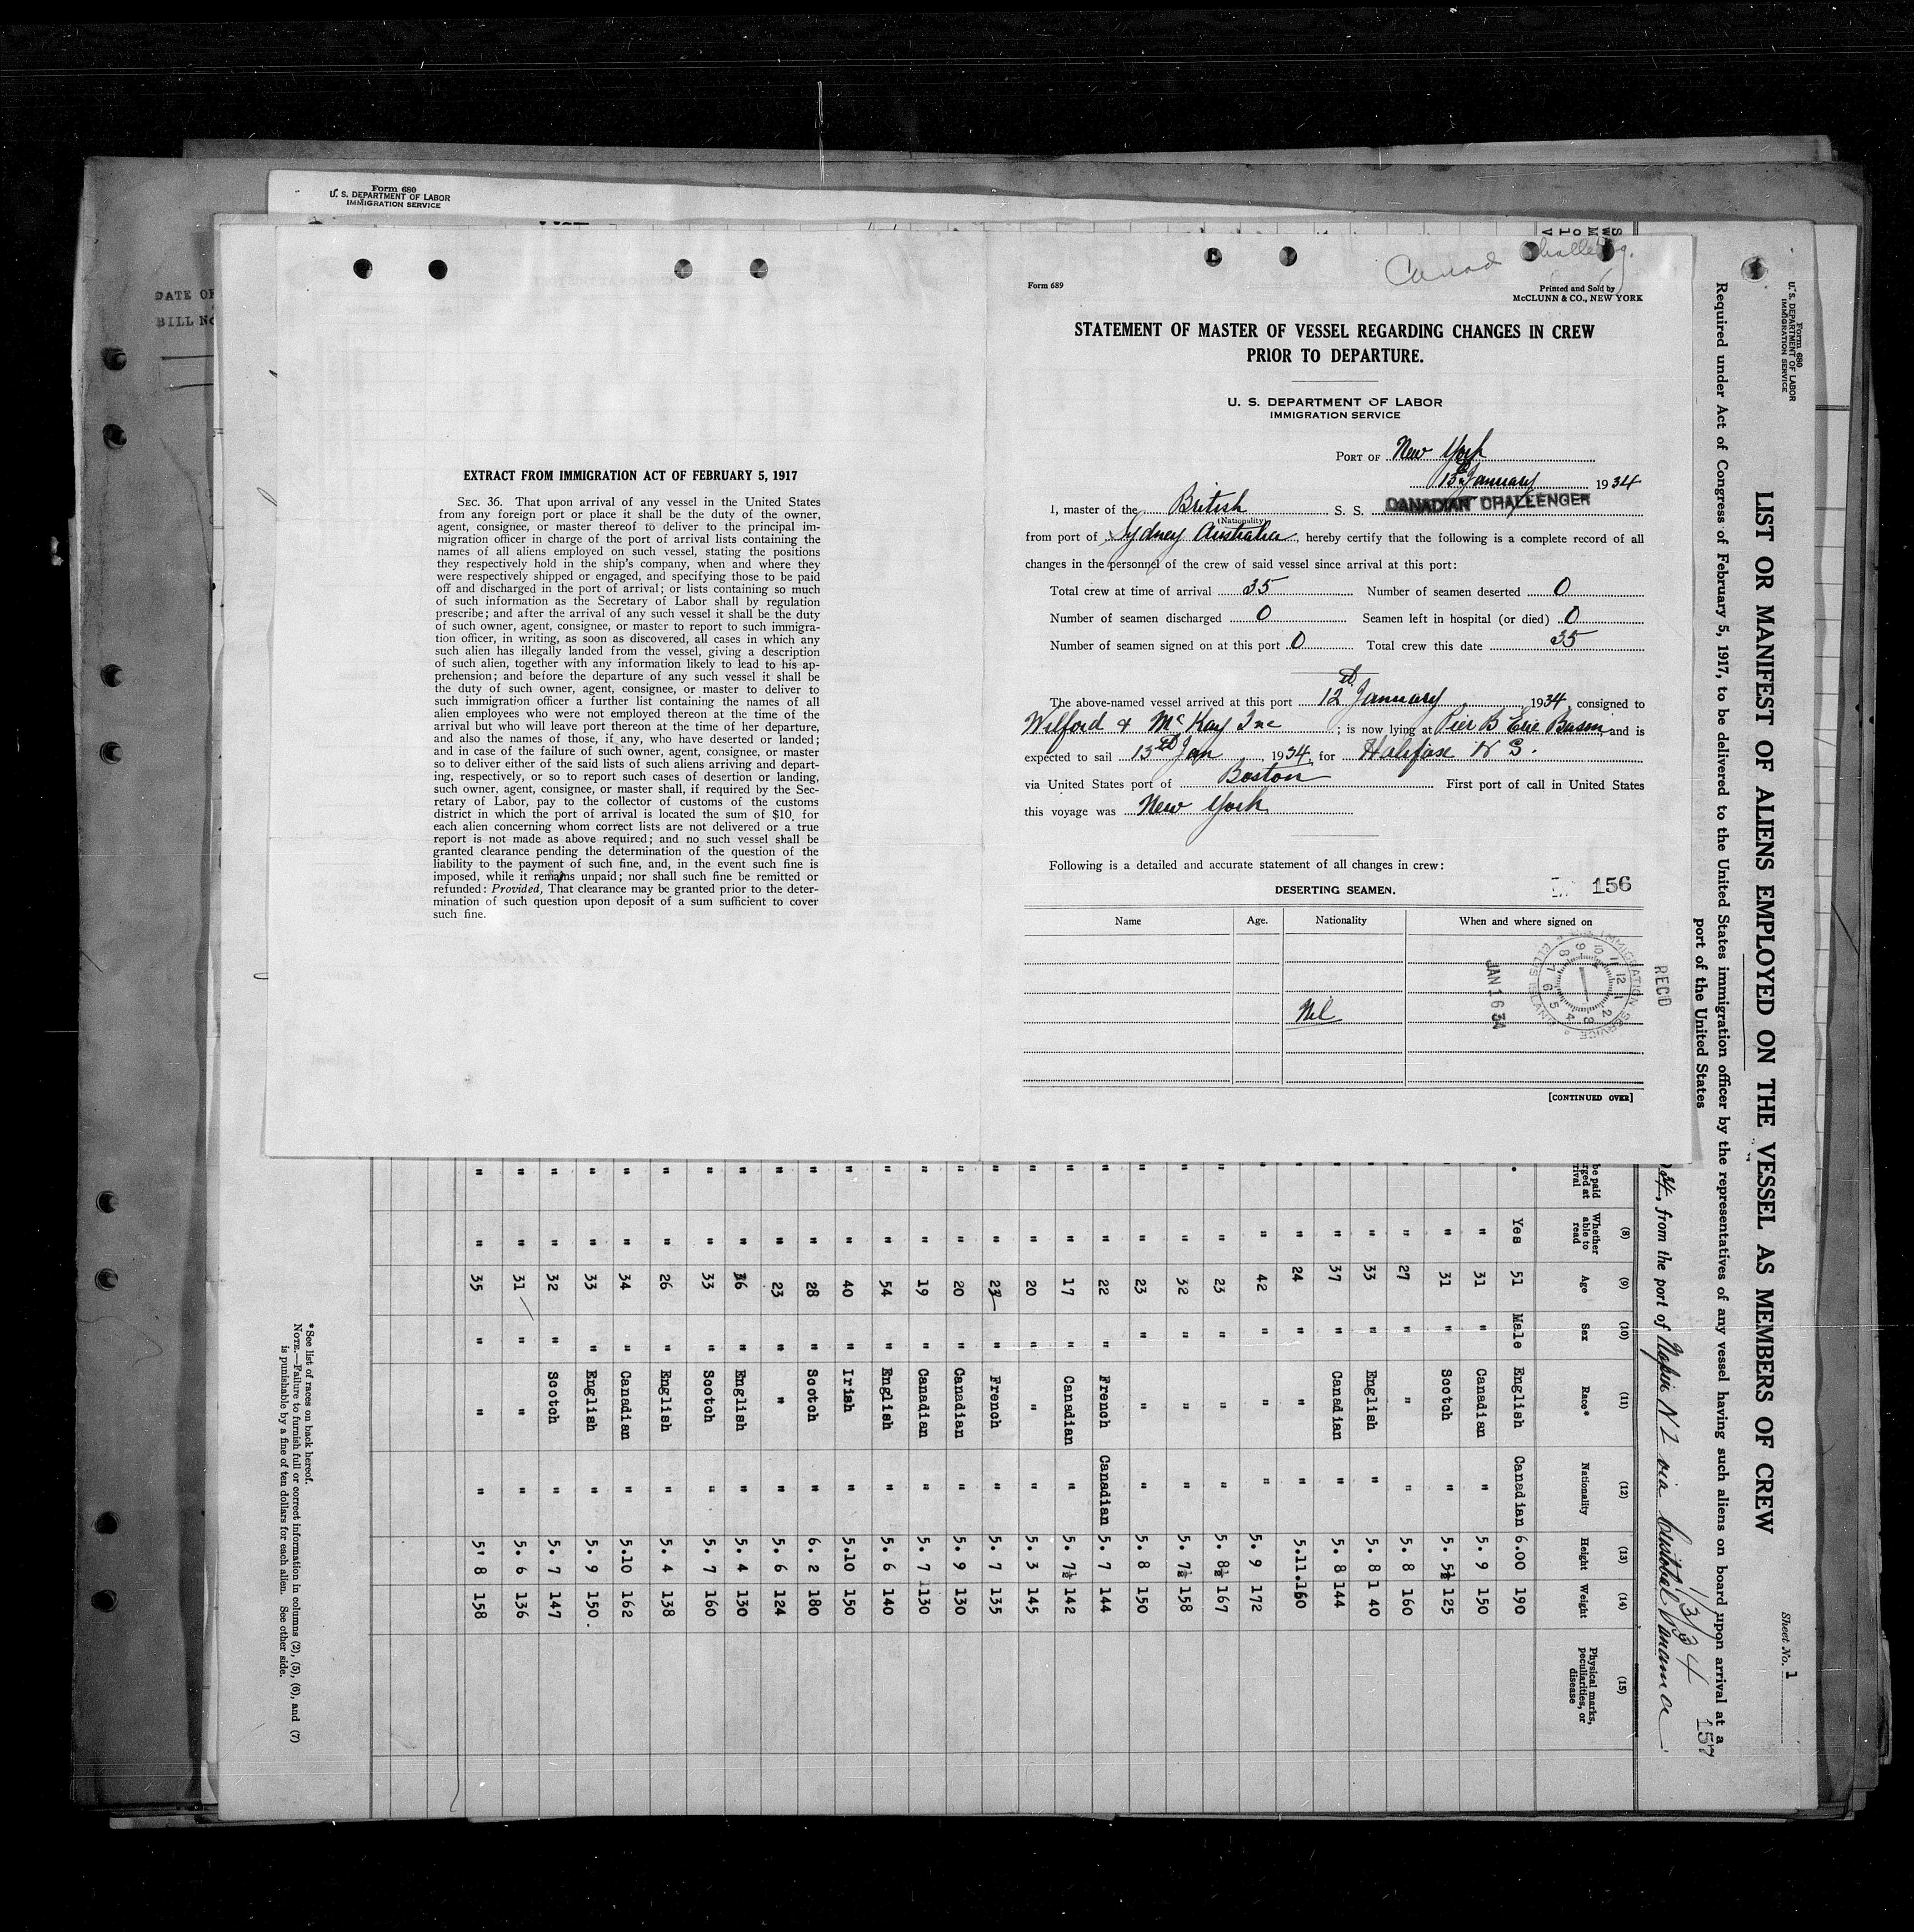 Form 680
U. S. DEPARTMENT OF LABOR
IMMIGRATION SERVICE
DATE OF
BILL No
EXTRACT FROM IMMIGRATION ACT OF FEBRUARY 5, 1917
SEC. 36. That upon arrival of any vessel in the United States
from any foreign port or place it shall be the duty of the owner,
agent, consignee, or master thereof to deliver to the principal im-
migration officer in charge of the port of arrival lists containing the
names of all aliens employed on such vessel, stating the positions
they respectively hold in the ship's company, when and where they
were respectively shipped or engaged, and specifying those to be paid
off and discharged in the port of arrival; or lists containing so much
of such information as the Secretary of Labor shall by regulation
prescribe; and after the arrival of any such vessel it shall be the duty
of such owner, agent, consignee, or master to report to such immigra-
tion officer, in writing, as soon as discovered, all cases in which any
such alien has illegally landed from the vessel, giving a description
of such alien, together with any information likely to lead to his ap-
prehension; and before the departure of any such vessel it shall be
the duty of such owner, agent, consignee, or master to deliver to
such immigration officer a further list containing the names of all
alien employees who were not employed thereon at the time of the
arrival but who will leave port thereon at the time of her departure,
and also the names of those, if any, who have deserted or landed;
and in case of the failure of such owner, agent, consignee, or master
so to deliver either of the said lists of such aliens arriving and depart-
ing, respectively, or so to report such cases of desertion or landing,
such owner, agent, consignee, or master shall, if required by the Sec-
retary of Labor, pay to the collector of customs of the customs
district in which the port of arrival is located the sum of $10 for
each alien concerning whom correct lists are not delivered or a true
report is not made as above required; and no such vessel shall be
granted clearance pending the determination of the question of the
liability to the payment of such fine, and, in the event such fine is
imposed, while it remains unpaid; nor shall such fine be remitted or
refunded: Provided, That clearance may be granted prior to the deter-
mination of such question upon deposit of a sum sufficient to cover
such fine.
Canad Challeng.
Form 689
Printed and Sold by
McCLUNN & CO., NEW YORK
STATEMENT OF MASTER OF VESSEL REGARDING CHANGES IN CREW
PRIOR TO DEPARTURE.
U. S. DEPARTMENT OF LABOR
IMMIGRATION SERVICE
PORT OF New York
13 January 1934
I, master of the British S. S. CANADIAN CHALLENGER
(Nationality)
from port of Sydney Australia, hereby certify that the following is a complete record of all
changes in the personnel of the crew of said vessel since arrival at this port:
Total crew at time of arrival 35 Number of seamen deserted 0
Number of seamen discharged 0 Seamen left in hospital (or died) 0
Number of seamen signed on at this port 0 Total crew this date 35
The above-named vessel arrived at this port 12 January 1934, consigned to
Wilford & McKay Inc; is now lying at Pier B Erie Basin and is
expected to sail 13 Jan, 1934, for Halifax N S.
via United States port of Boston First port of call in United States
this voyage was New York
Following is a detailed and accurate statement of all changes in crew:
DESERTING SEAMEN. 156
Name Age. Nationality When and where signed on
Nil
REC'D
JAN 16 34
U.S. IMMIGRATION SERVICE ELLIS ISLAND
[CONTINUED OVER]
Form 680
U. S. DEPARTMENT OF LABOR
IMMIGRATION SERVICE
Sheet No. 1
LIST OR MANIFEST OF ALIENS EMPLOYED ON THE VESSEL AS MEMBERS OF CREW
Required under Act of Congress of February 5, 1917, to be delivered to the United States immigration officer by the representatives of any vessel having such aliens on board upon arrival at a
port of the United States
1/13/34
157
34, from the port of Napier N Z via Cristobal Panama
be paid
rged at
rival
(8) Whether able to read
(9) Age
(10) Sex
(11) Race*
(12) Nationality
(13) Height
(14) Weight
(15) Physical marks, peculiarities, or disease
Yes 51 Male English Canadian 6.00 190
" " 31 " Canadian " 5. 9 150
" 31 " Scotch " 5. 5½ 125
" " 27 " " " 5. 8 160
" " 33 " English " 5. 8 140
" " 37 " Canadian " 5. 8 144
" " 24 " " " 5.11. 160
" " 42 " " " 5. 9 172
" " 23 " " " 5. 8½ 167
" " 32 " " " 5. 7½ 158
" " 23 " " " 5. 8 150
" " 22 " French Canadian 5. 7 144
" " 17 " Canadian " 5. 7½ 142
" " 20 " " " 5. 3 145
" " 23 " French " 5. 7 135
" " 20 " Canadian " 5. 9 130
" " 19 " Canadian " 5. 7 130
" " 54 " English " 5. 6 140
" " 40 " Irish " 5.10 150
" " 28 " Scotch " 6. 2 180
" " 23 " " " 5. 6 124
" " 36 " English " 5. 4 130
" " 33 " Scotch " 5. 7 160
" " 26 " English " 5. 4 138
" " 34 " Canadian " 5.10 162
" " 33 " English " 5. 9 150.
" " 32 " Scotch " 5. 7 147
" " 31 " " " 5. 6 136
" " 35 " " " 5' 8 158
*See list of races on back hereof.
NOTE.—Failure to furnish full or correct information in columns (2), (5), (6), and (7)
is punishable by a fine of ten dollars for each alien. See other side.